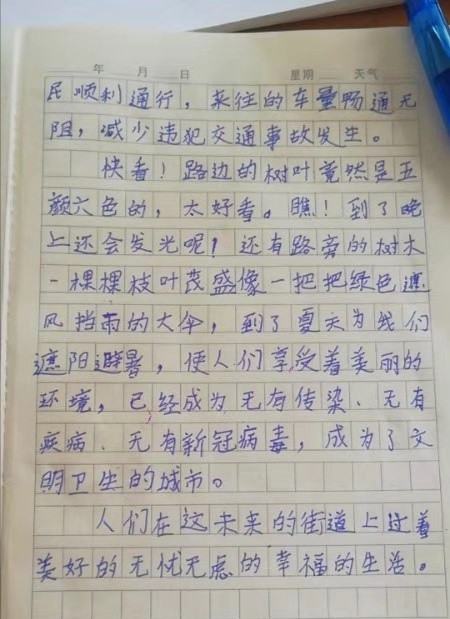 年 月 日 星期 天气
民顺利通行，来往的车量畅通无
阻，减少违犯交通事故发生。
快看！路边的树叶竟然是五
颜六色的，太好看。瞧！到了晚
上还会发光呢！还有路旁的树木
一棵棵枝叶茂盛像一把把绿色遮
风挡雨的大伞，到了夏天为我们
遮阳避暑，使人们享受着美丽的
环境，已经成为无有传染、无有
疾病、无有新冠病毒，成为了文
明卫生的城市。
人们在这未来的街道上过着
美好的无忧无虑的幸福的生活。